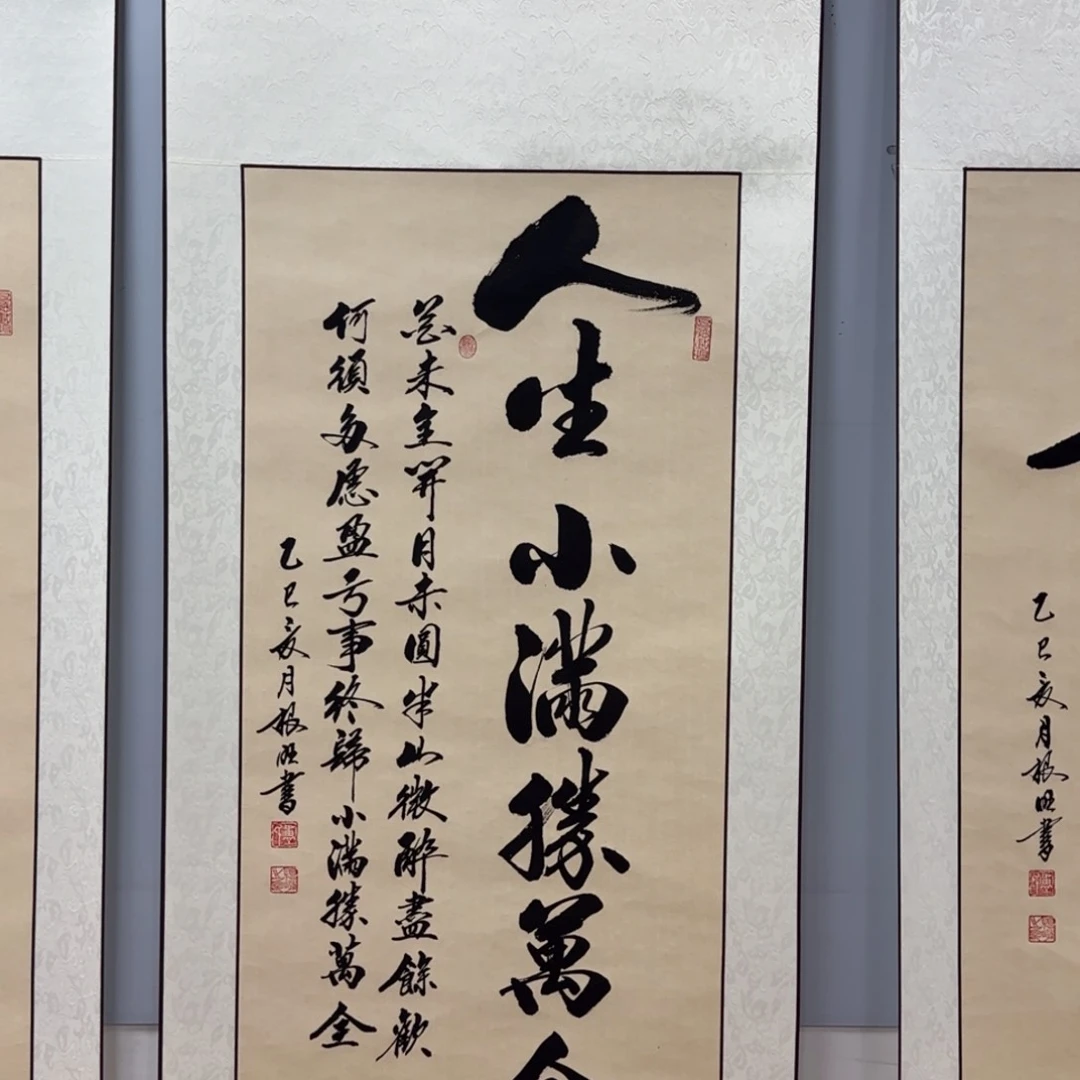 乙巳亥月根旺書
人生小滿勝萬全
花未全開月未圓半山微醉盡餘歡
何須多慮盈亏事終歸小滿勝萬全
乙巳亥月根旺書